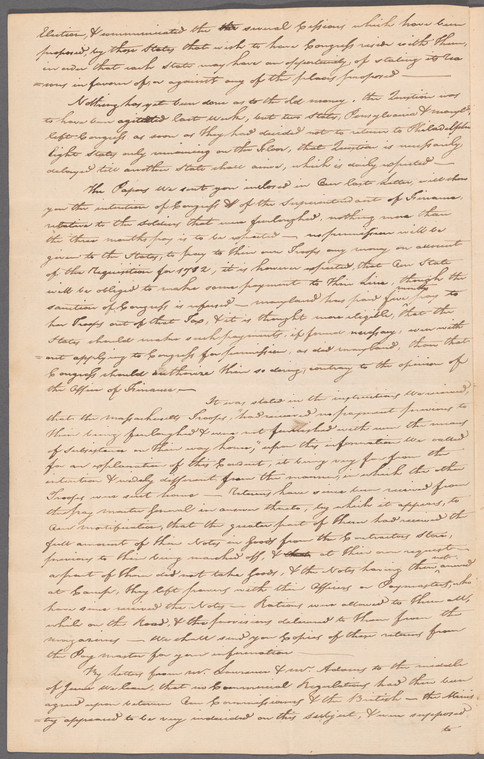 Election, & communicated the several Cessions which have been
proposed, by those States that wish to have Congress reside with them,
in order that each State may have an opportunity, of stating its Rea
=sons in favour of, or against any of the places proposed —
Nothing has yet been done as to the old money. the Question was
to have been agitated last Week, but two States, Pensylvania & Maryld
left Congress as soon as they had decided not to return to Philadelphia
Eight States only remaining on the floor, that Question is necessarily
delayed till another State shall arrive, which is daily expected —
The Papers We sent you inclosed in Our last Letter, will shew
you the intention of Congress & of the Superintendant of Finance,
relative to the Soldiers that were furloughed, nothing more than
the three months pay is to be expected — no permission will be
given to the States, to pay to their own Troops any money on account
of the Requisition for 1782, it is however expected, that Our State
will be obliged to make some payment to their Line, though the
sanction of Congress is refused — Maryland has paid five months pay to
her Troops out of that Tax, & it is thought more elegible, that the
States should make such payments, if found necessary, even with
=out applying to Congress for permission, as did Maryland, than that
Congress should authorize their so doing, contrary to the opinion of
the Office of Finance —
It was stated in the instructions We received,
that the Massachusetts Troops, "had received no payment previous to
their being furloughed & were not furnished with even the means
of Subsistance on their way home," upon this information We called
for an explanation of this Conduct, it being very far from the
intention & widely different from the manner, in which the other
Troops were sent home — Returns have since been received from
the pay master General in answer thereto, by which it appears, to
Our mortification, that the greater part of them had received the
full amount of their Notes in Goods from the Contractors Store,
previous to their being marched off, & at their own request —
a part of them did not take Goods, & the Notes having not then arrived
at Camp, they left powers with the Officers or Paymasters, who
have since received the Notes — Rations were allowed to them all,
while on the Road, & the provisions delivered to them from the
magazines — We shall send you Copies of these returns from
the Pay master for your information —
By letters from Mr. Laurens & Mr. Adams to the middle
of June We learn, that no Commercial Regulations had then been
agreed upon between Our Commissioners & the British — the Minis
=try appeared to be very undecided on this subject, & were supposed
to